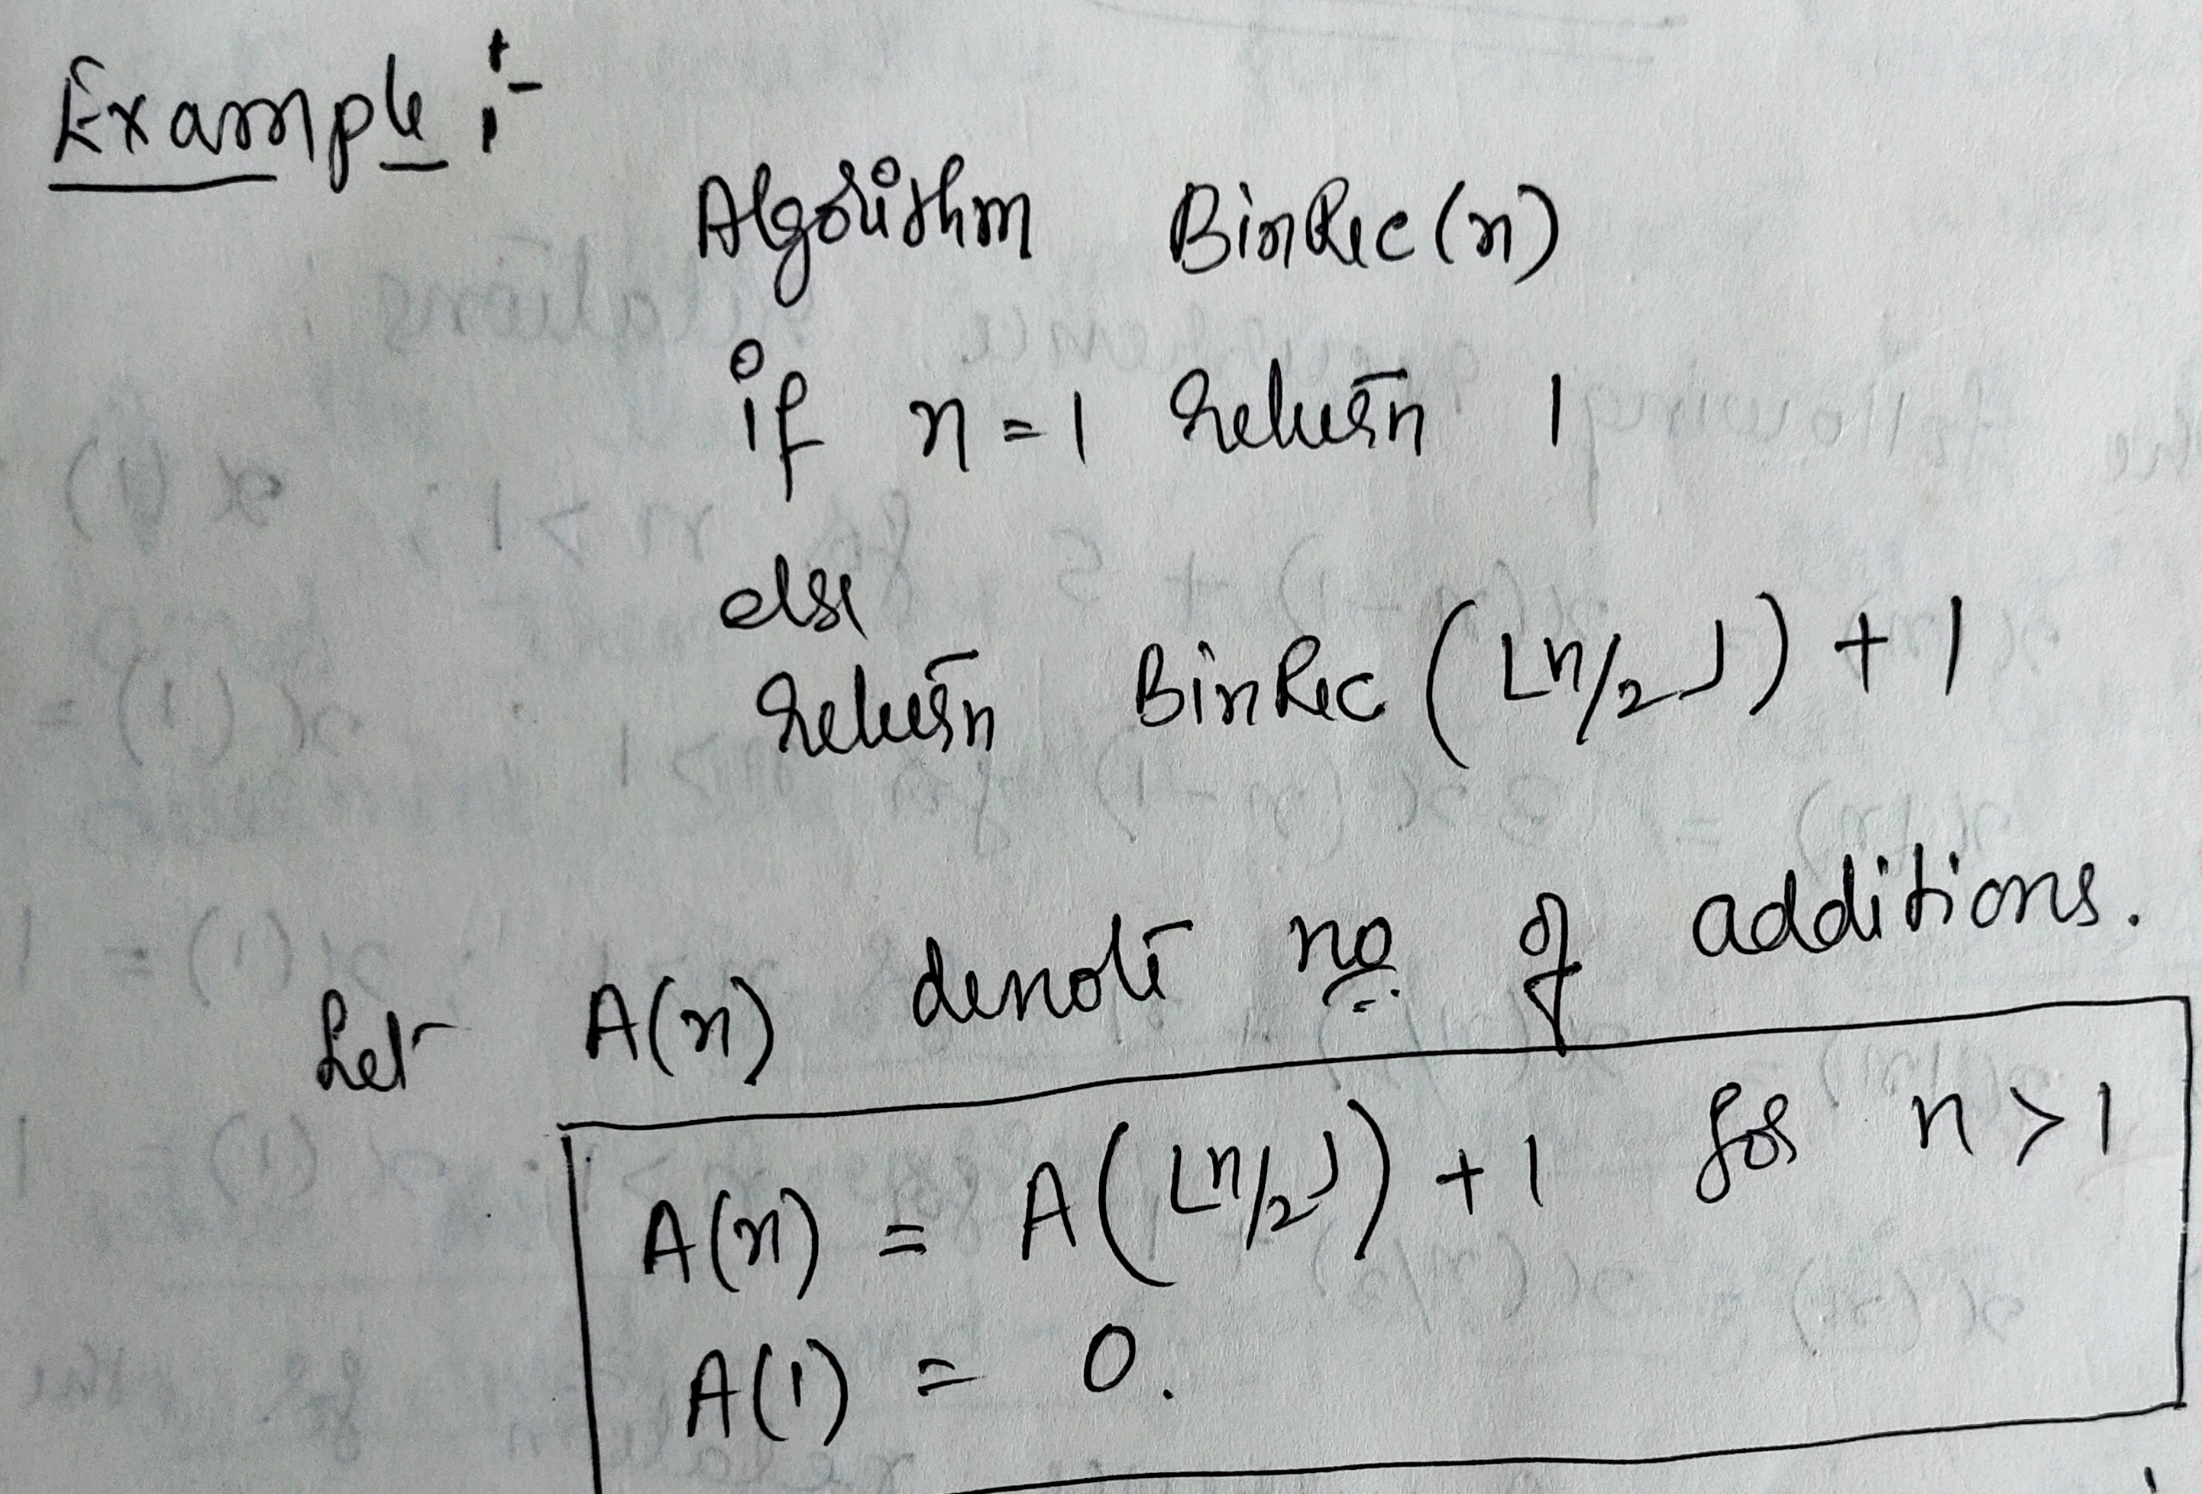 Example :-
Algorithm BinRec(n)
if n = 1 return 1
else
return BinRec (⌊n/2⌋) + 1
Let A(n) denote no of additions.
A(n) = A(⌊n/2⌋) + 1 for n > 1
A(1) = 0.